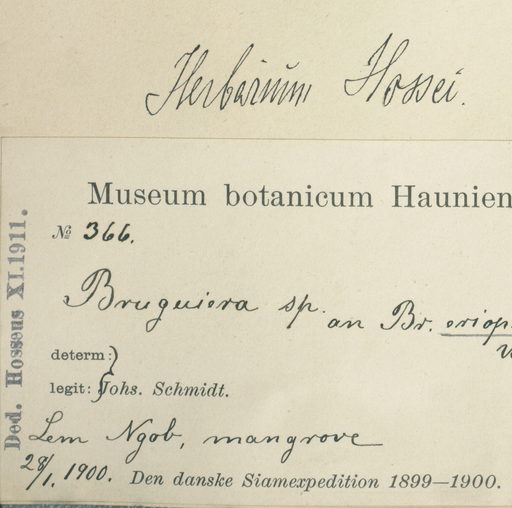 Herbarium Hossei.
Museum botanicum Haunien
№ 366.
Bruguiera sp. an Br. eriop
determ:
legit: Johs. Schmidt.
Lem Ngob, mangrove
28/1. 1900. Den danske Siamexpedition 1899—1900.
Ded. Hosseus XI.1911.